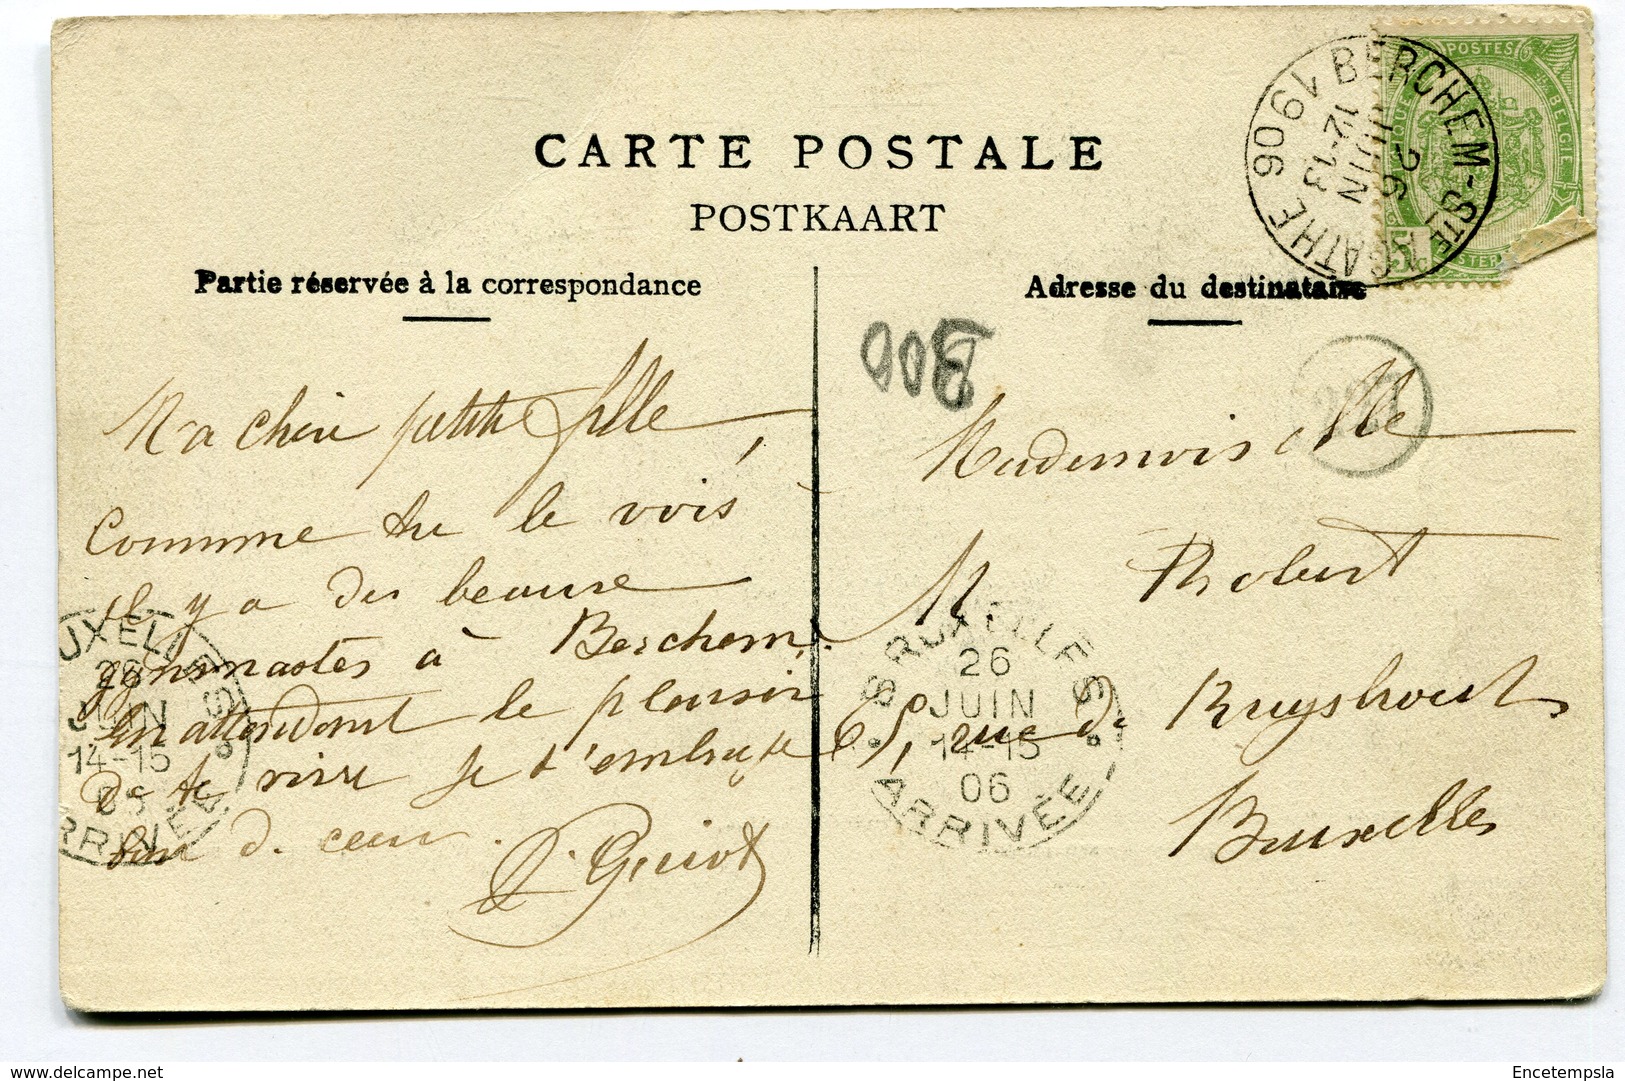 CARTE POSTALE
POSTKAART
Partie réservée à la correspondance
Adresse du destinataire
BERCHEM-STE AGATHE
26
JUIN
12-13
1906
POSTES
BELGIE
5
Ma chère petite fille,
Comme tu le vois
il y a des beaux
gymnastes à Berchem.
En attendant le plaisir
de te voir je t'embrasse
bien d. cœur.
Guiot
Mademoiselle
M. Robert
65, rue de Ruysbroeck
Bruxelles
BRUXELLES
26
JUIN
14-15
06
ARRIVÉE
UXELLES
26
JUIN
14-15
06
RRIVÉE
Encetempsla